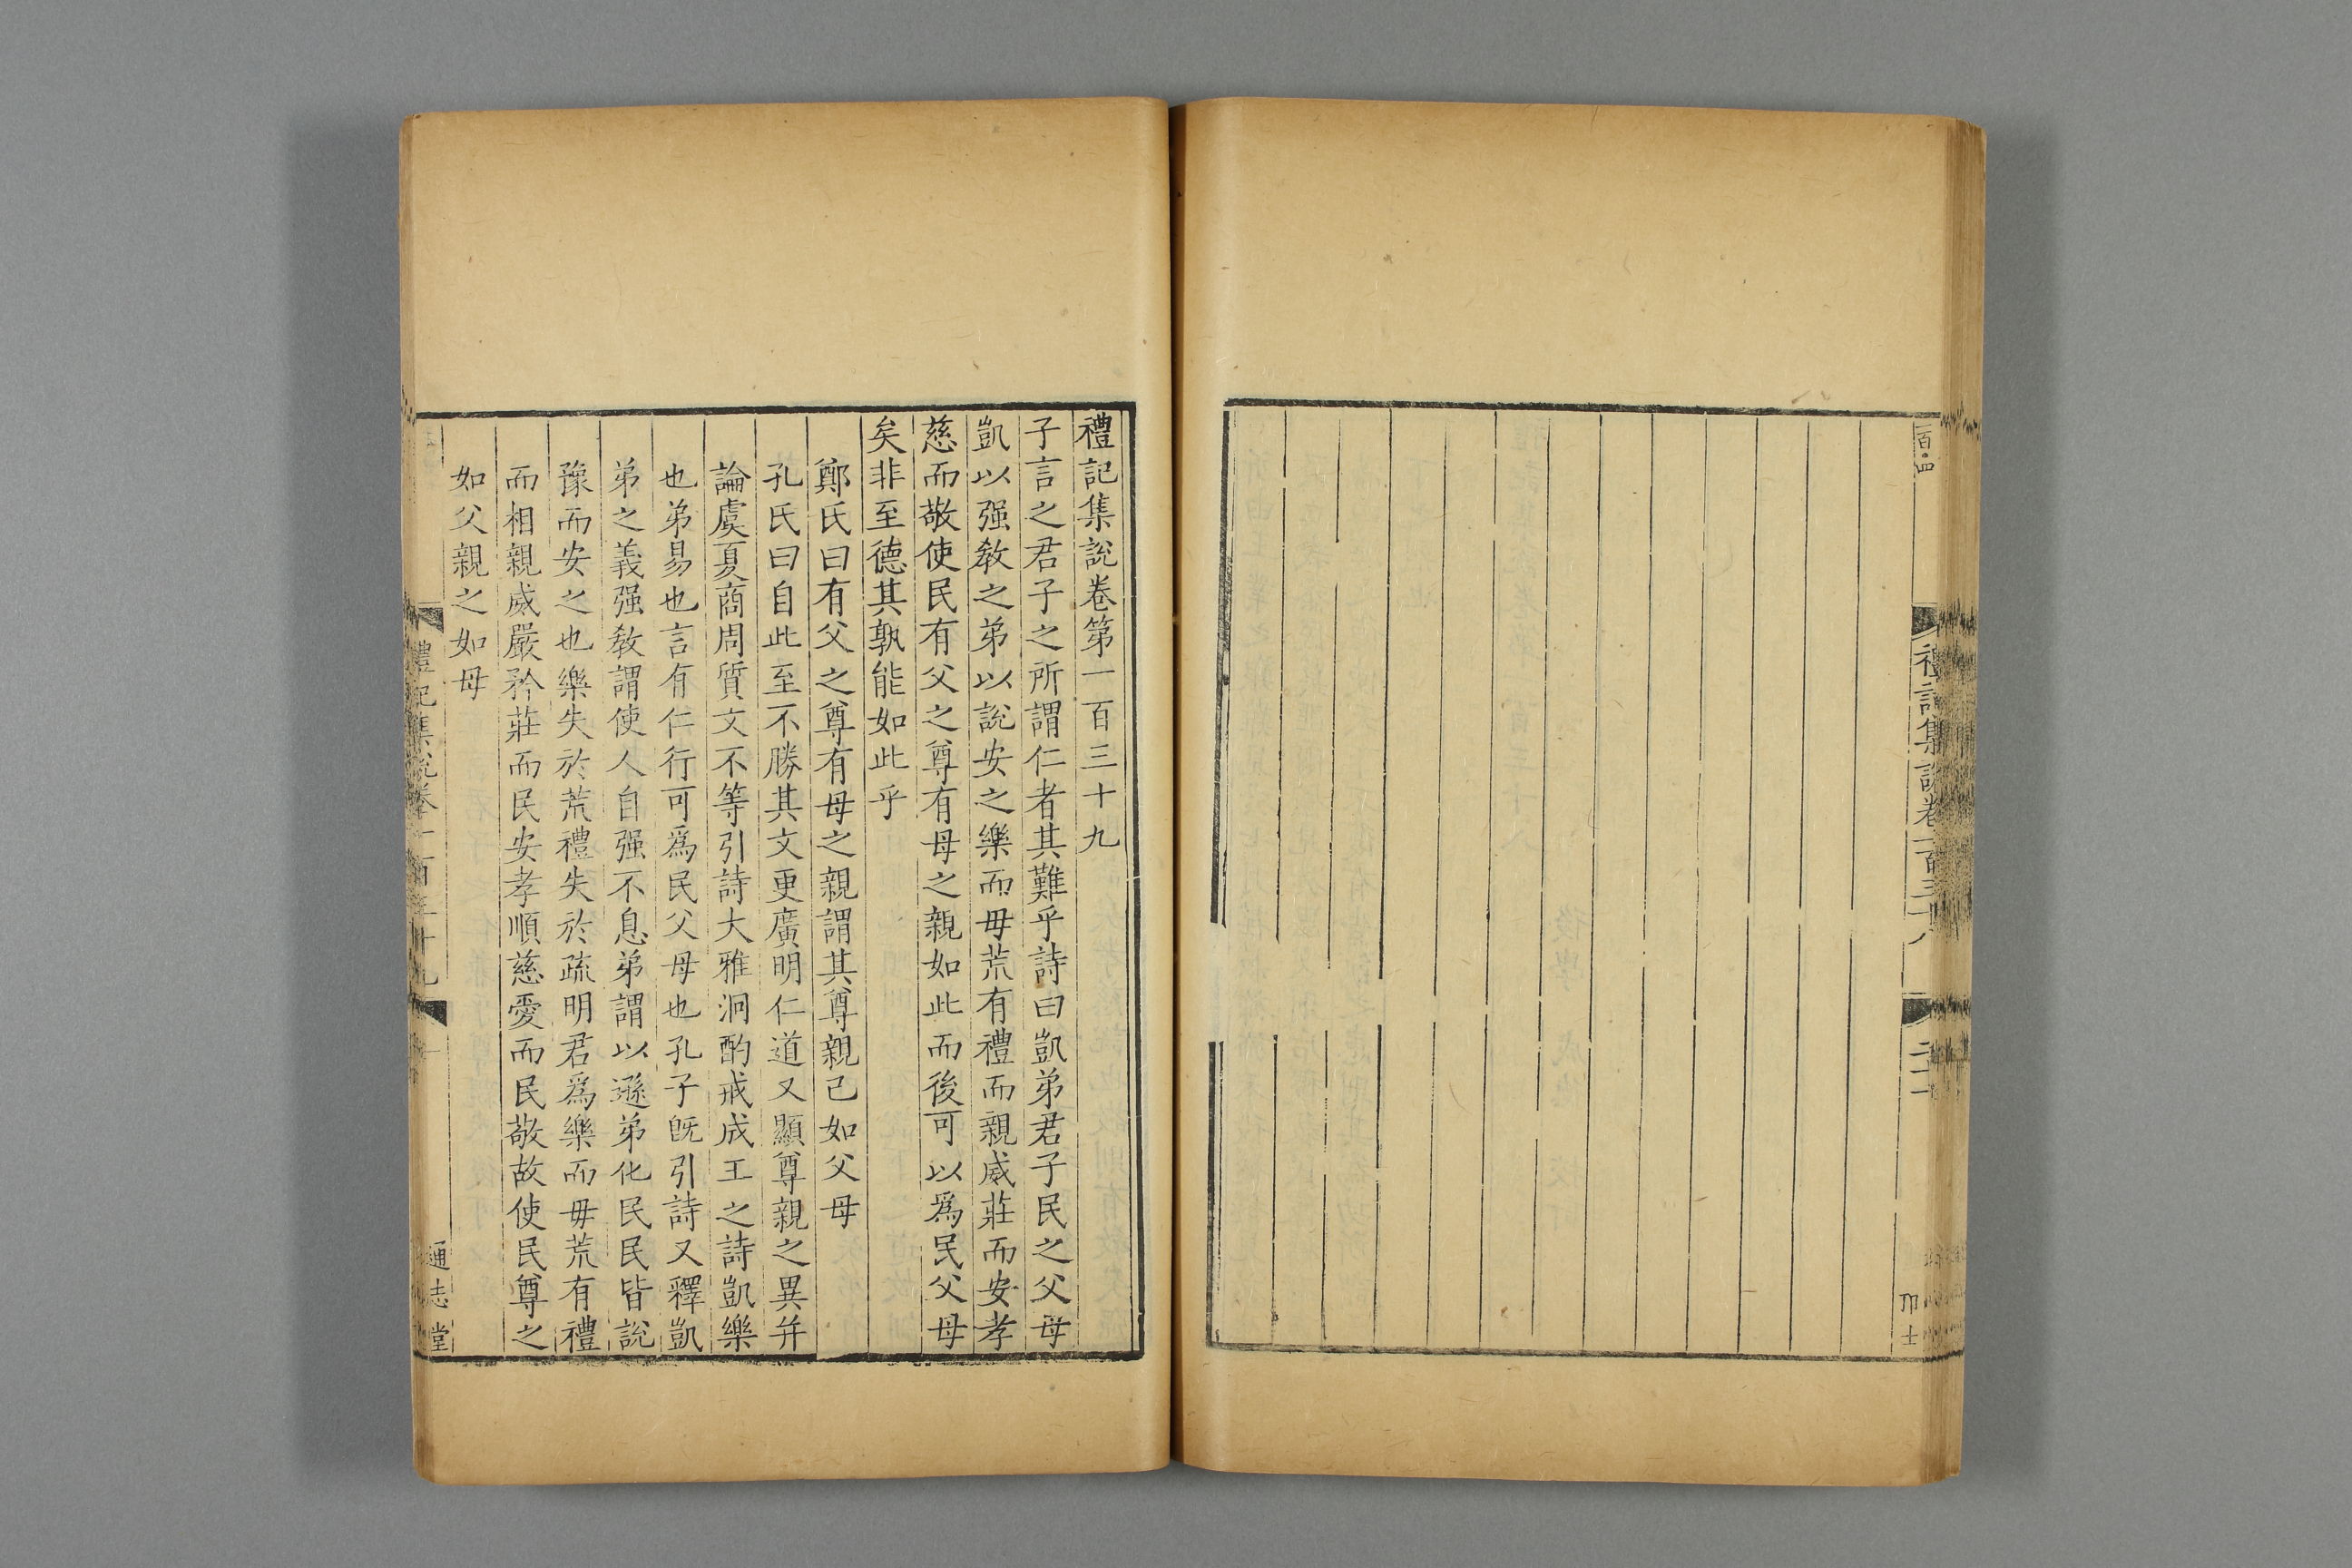 禮記集說卷一百三十八
禮記集說卷第一百三十九
子言之君子之所謂仁者其難乎詩曰凱弟君子民之父母
凱以强敎之弟以說安之樂而毋荒有禮而親威莊而安孝
慈而敬使民有父之尊有母之親如此而後可以爲民父母
矣非至德其孰能如此乎
鄭氏曰有父之尊有母之親謂其尊親己如父母
孔氏曰自此至不勝其文更廣明仁道又顯尊親之異幷
論虞夏商周質文不等引詩大雅泂酌戒成王之詩凱樂
也弟易也言有仁行可爲民父母也孔子旣引詩又釋凱
弟之義强敎謂使人自强不息弟謂以遜弟化民民皆說
豫而安之也樂失於荒禮失於疏明君爲樂而毋荒有禮
而相親威嚴矜莊而民安孝順慈愛而民敬故使民尊之
如父親之如母
禮記集說卷一百三十九
一
通志堂